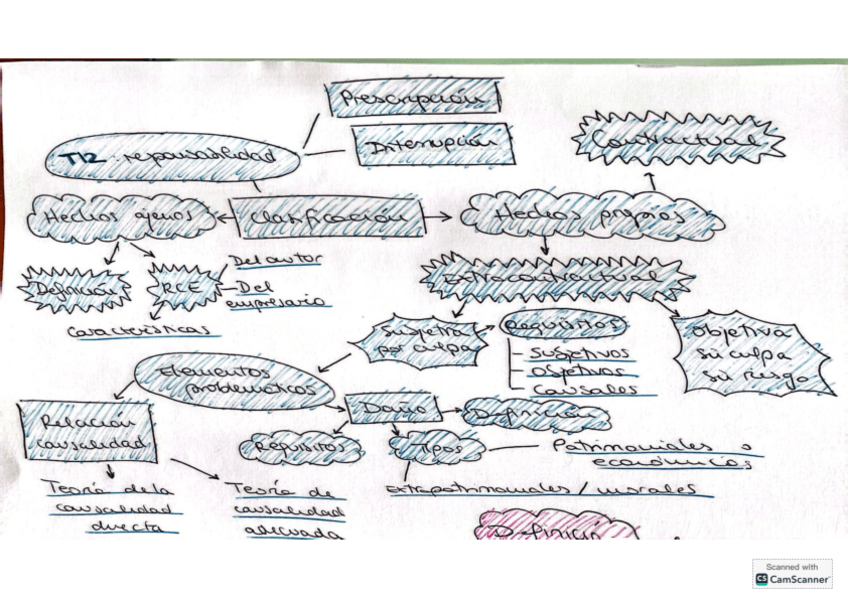 Prescripción
Interrupción
Contractual
T12 responsabilidad
Hechos ajenos
Clasificación
Hechos propios
Definición
RCE
Del autor
Del
empresario
Extracontractual
Características
Subjetiva
por culpa
Requisitos
Subjetivos
Objetivos
Causales
Objetiva
su culpa
su riesgo
Elementos
problemáticos
Relación
causalidad
Daño
Definición
Requisitos
Tipos
Patrimoniales o
económicos
Extrapatrimoniales / morales
Teoría de la
causalidad
directa
Teoría de
causalidad
adecuada
Definició
Scanned with
CS CamScanner